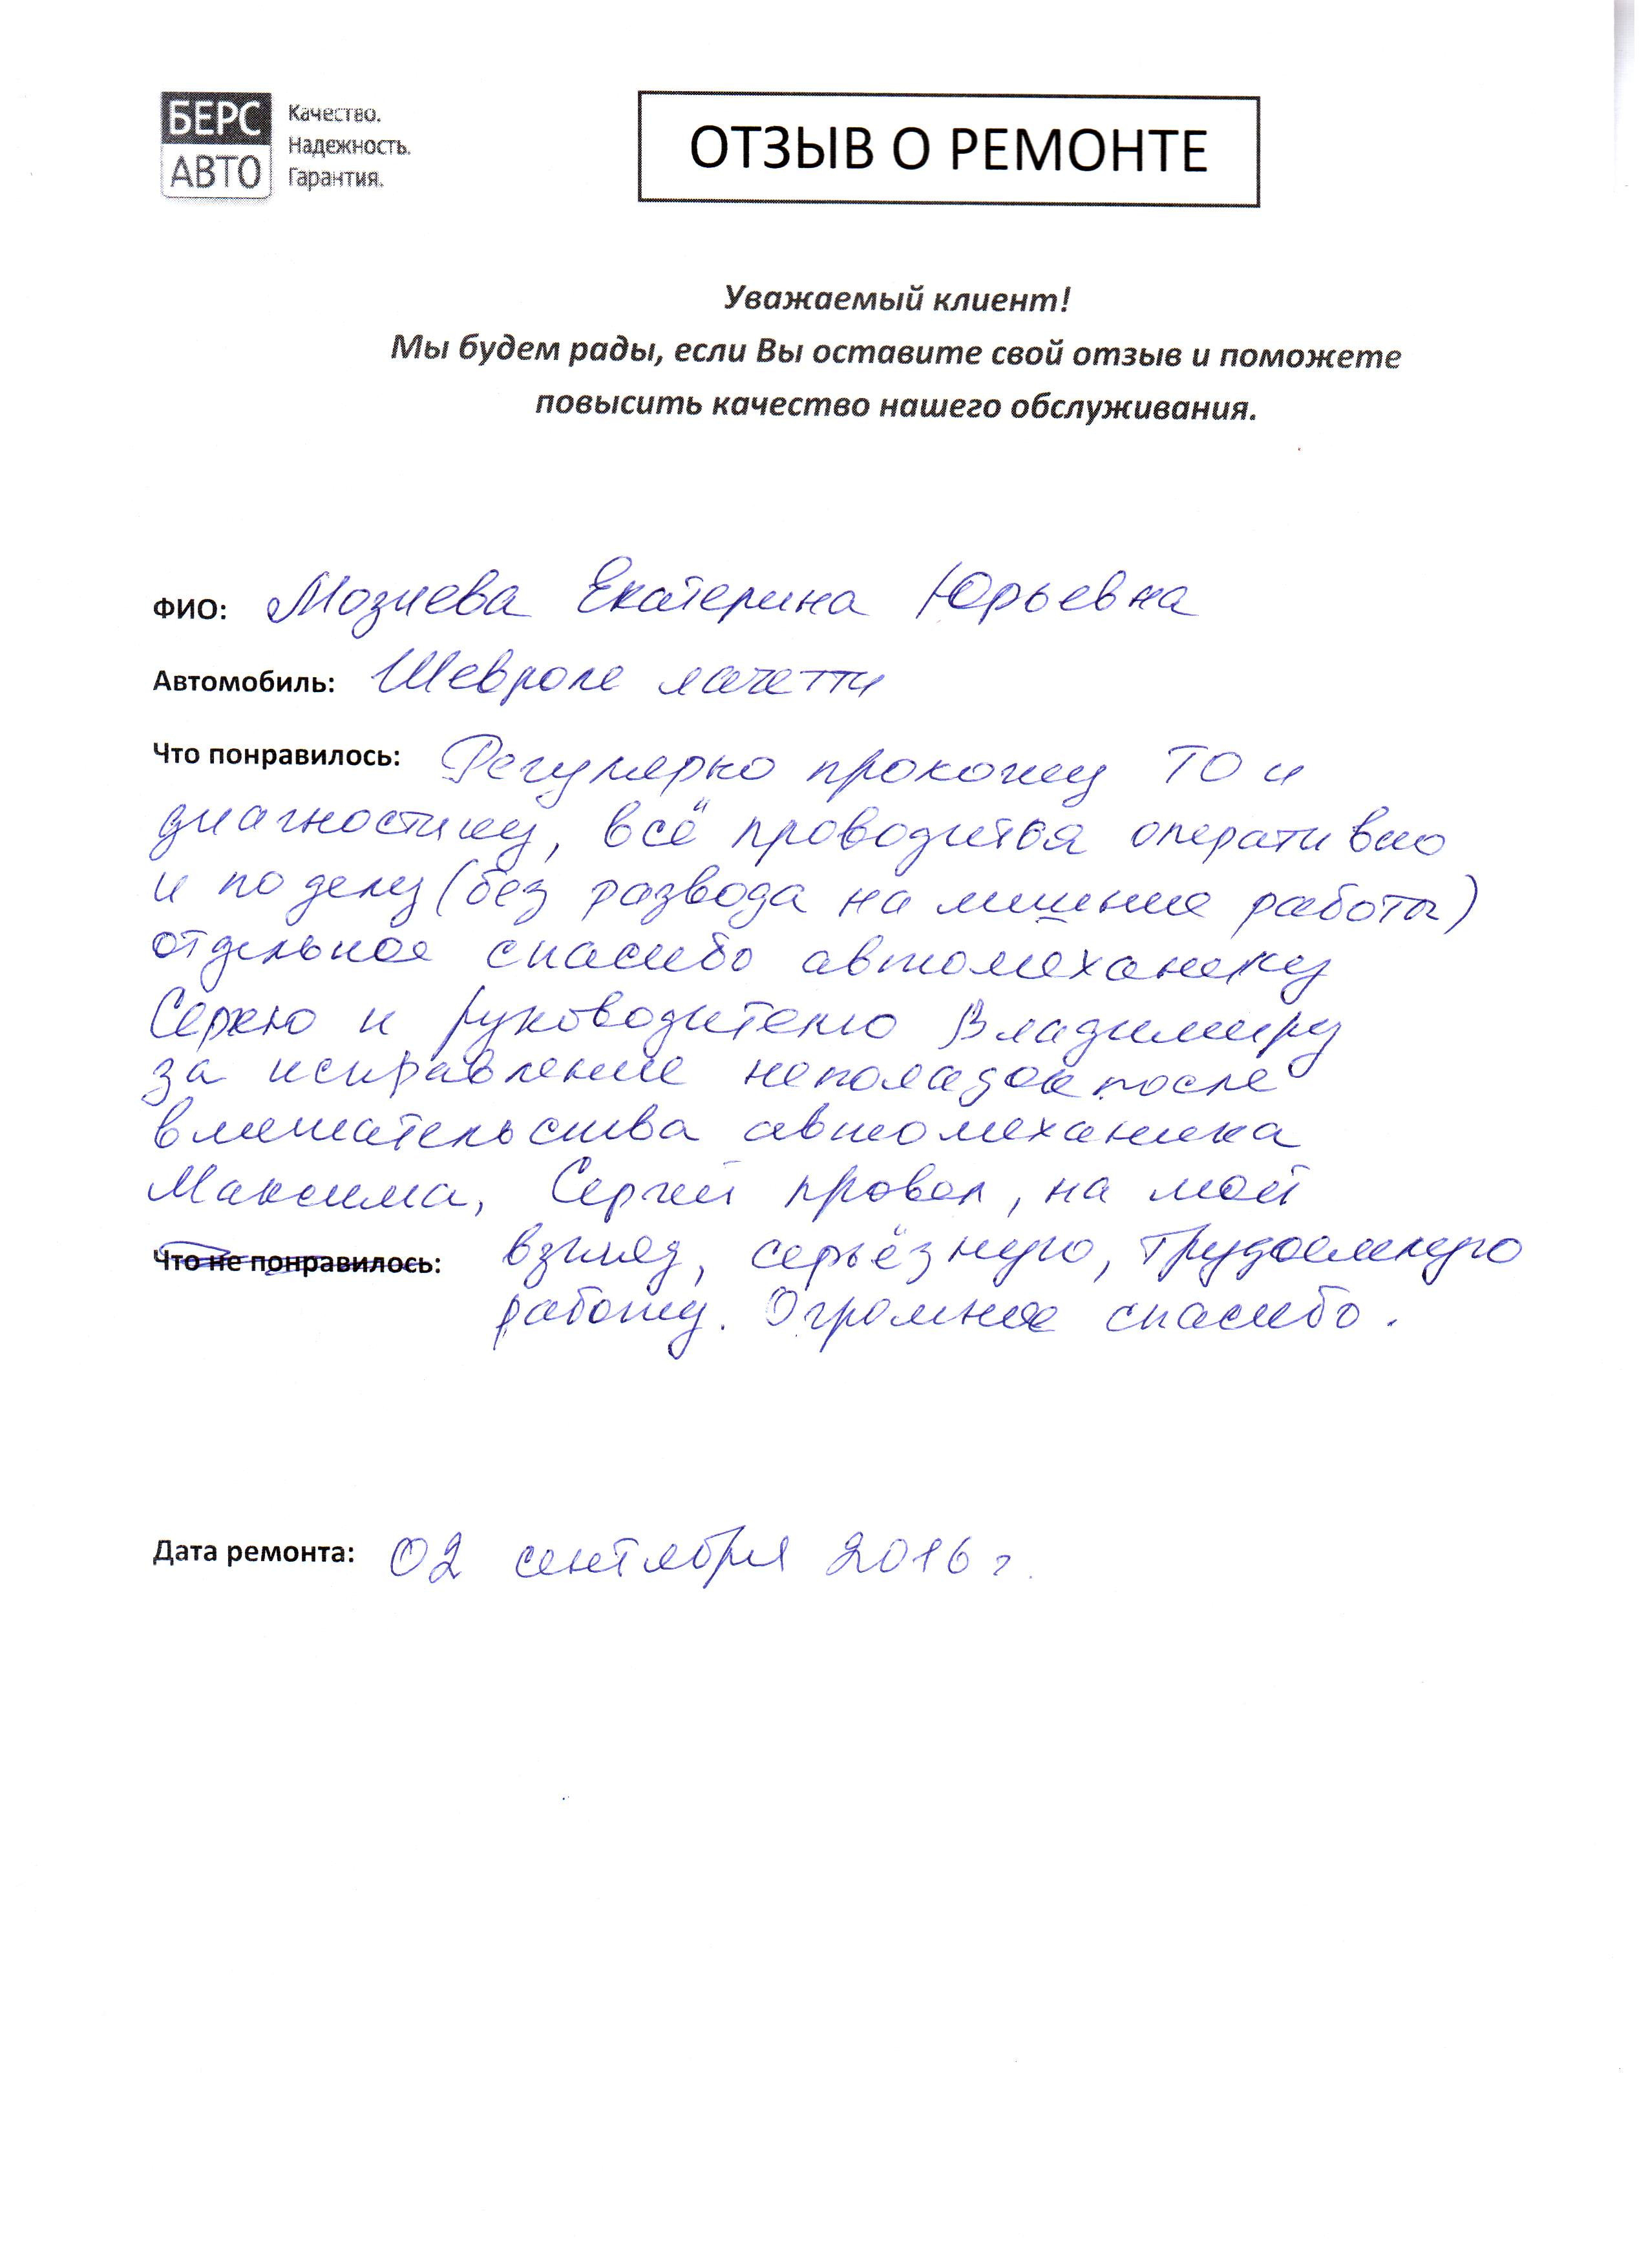 БЕРС
АВТО
Качество.
Надежность.
Гарантия.
ОТЗЫВ О РЕМОНТЕ
Уважаемый клиент!
Мы будем рады, если Вы оставите свой отзыв и поможете
повысить качество нашего обслуживания.
ФИО: Екатерина Юрьевна
Автомобиль: Шевроле лачетти
Что понравилось: Регулярно прохожу ТО и
диагностику, всё проводится оперативно
и по делу (без развода на лишние работы)
отдельное спасибо автомеханику
Сергею и руководителю Владимиру
за исправление неполадок после
вмешательства автомеханика
Максима, Сергей провел, на мой
Что не понравилось: взгляд, серьёзную, трудоемкую
работу. Огромное спасибо.
Дата ремонта: 02 сентября 2016 г.